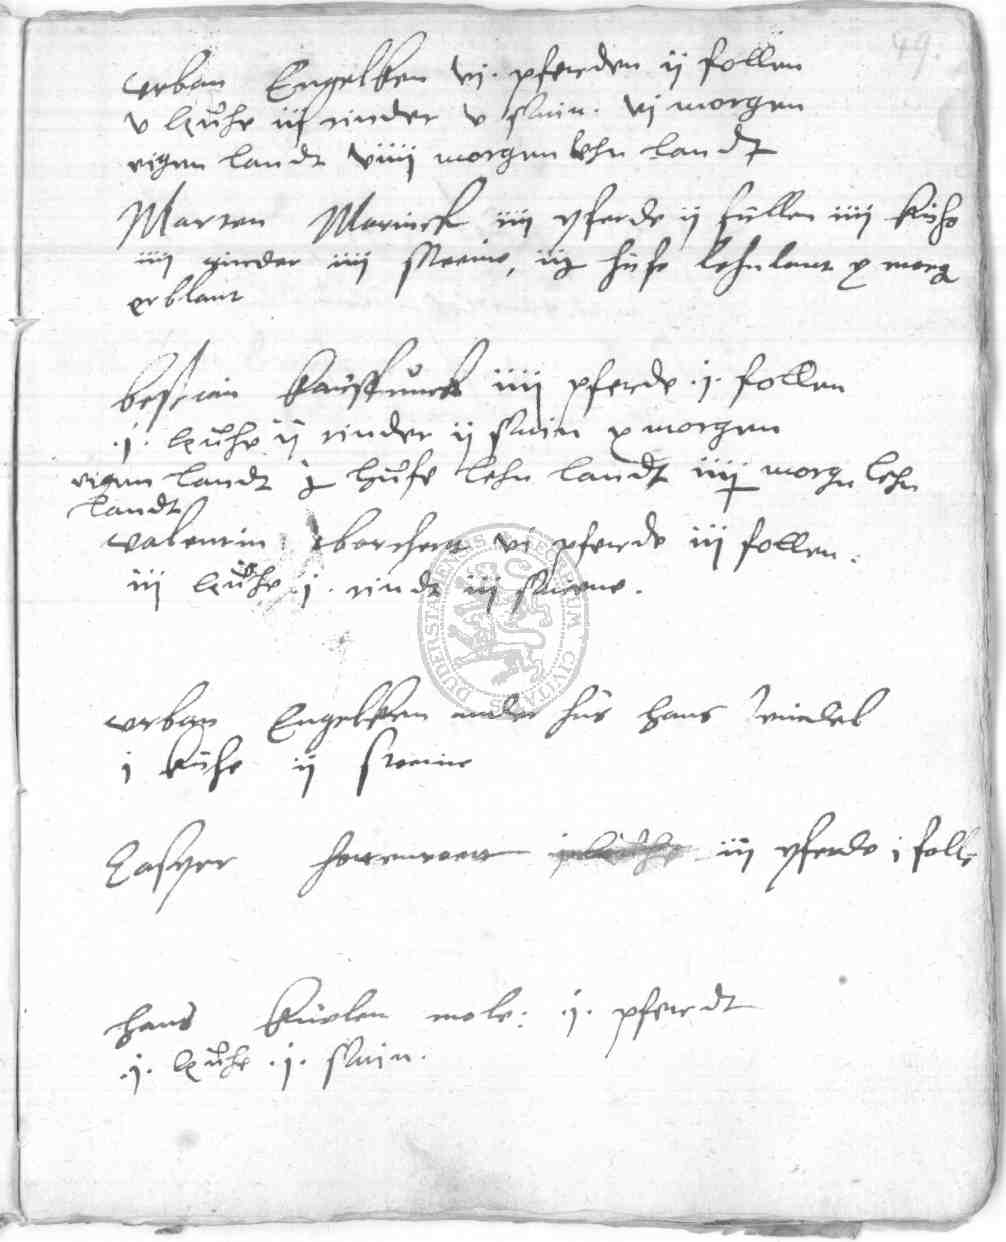 49.
vrban Engelken vj. pferden ij follen
v kuhe iij rinder v swin. vj morgen
eigen landt viiij morgen lehn landt
Marten iiij pferde ij füllen iiij kuhe
iiij rinder iiij sweine, hufe lehnlant x morg
erblant
bestian iiij pferde .j. follen
.j. kuhe ij rinder ij swin x morgen
eigen landt j hufe lehn landt iiij morgn lehn
landt
valentin borchert vj pferde iij follen.
iij kuhe .j. rindt iij swine.
vrban Engelken hus hans
j kuhe ij sweine
Casper iij pferde j foll
hans mole: .j. pferdt
.j. kuhe .j. swin.
DUDERSTADENSIS CIVITATIS